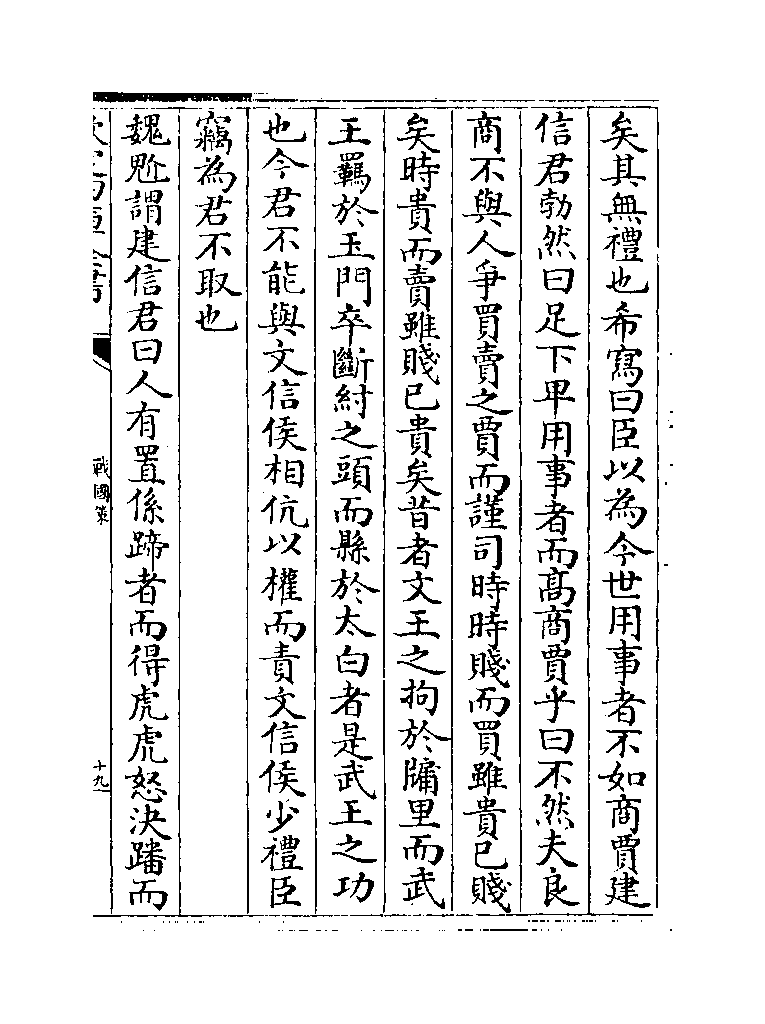 矣其無禮也希寫曰臣以為今世用事者不如商賈建
信君勃然曰足下卑用事者而高商賈乎曰不然夫良
商不與人爭買賣之賈而謹司時時賤而買雖貴已賤
矣時貴而賣雖賤已貴矣昔者文王之拘於牖里而武
王羈於玉門卒斷紂之頭而縣於太白者是武王之功
也今君不能與文信侯相伉以權而責文信侯少禮臣
竊為君不取也
魏魀謂建信君曰人有置係蹄者而得虎虎怒決蹯而
戰國策
十九